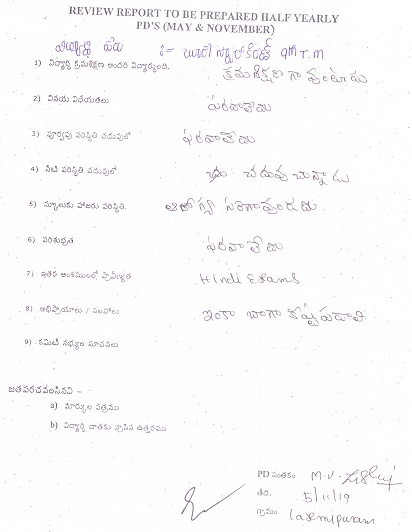 REVIEW REPORT TO BE PREPARED HALF YEARLY
PD'S (MAY & NOVEMBER)
విద్యార్థి పేరు :-
1) విద్యార్థి క్రమశిక్షణ అందరి విద్యార్థులది. క్రమశిక్షణ గా వుంటాడు
2) వినయ విధేయతలు పరవాలేదు
3) పూర్వపు పరిస్థితి చదువులో పరవాలేదు
4) నేటి పరిస్థితి చదువులో చదువు చున్నాడు
5) స్కూలుకు హాజరు పరిస్థితి.
6) పరిశుభ్రత పరవాలేదు
7) ఇతర అంశములలో ప్రావీణ్యత Hindi Exams
8) అభిప్రాయాలు / సలహాలు ఇంకా బాగా కష్టపడాలి
9) కమిటీ సభ్యుల సూచనలు
జతపరచవలసినవి –
a) మార్కుల పత్రము
b) విద్యార్థి దాతకు వ్రాసిన ఉత్తరము
PD సంతకం M.V.
తేది. 5/11/19
గ్రామం Laxmipuram